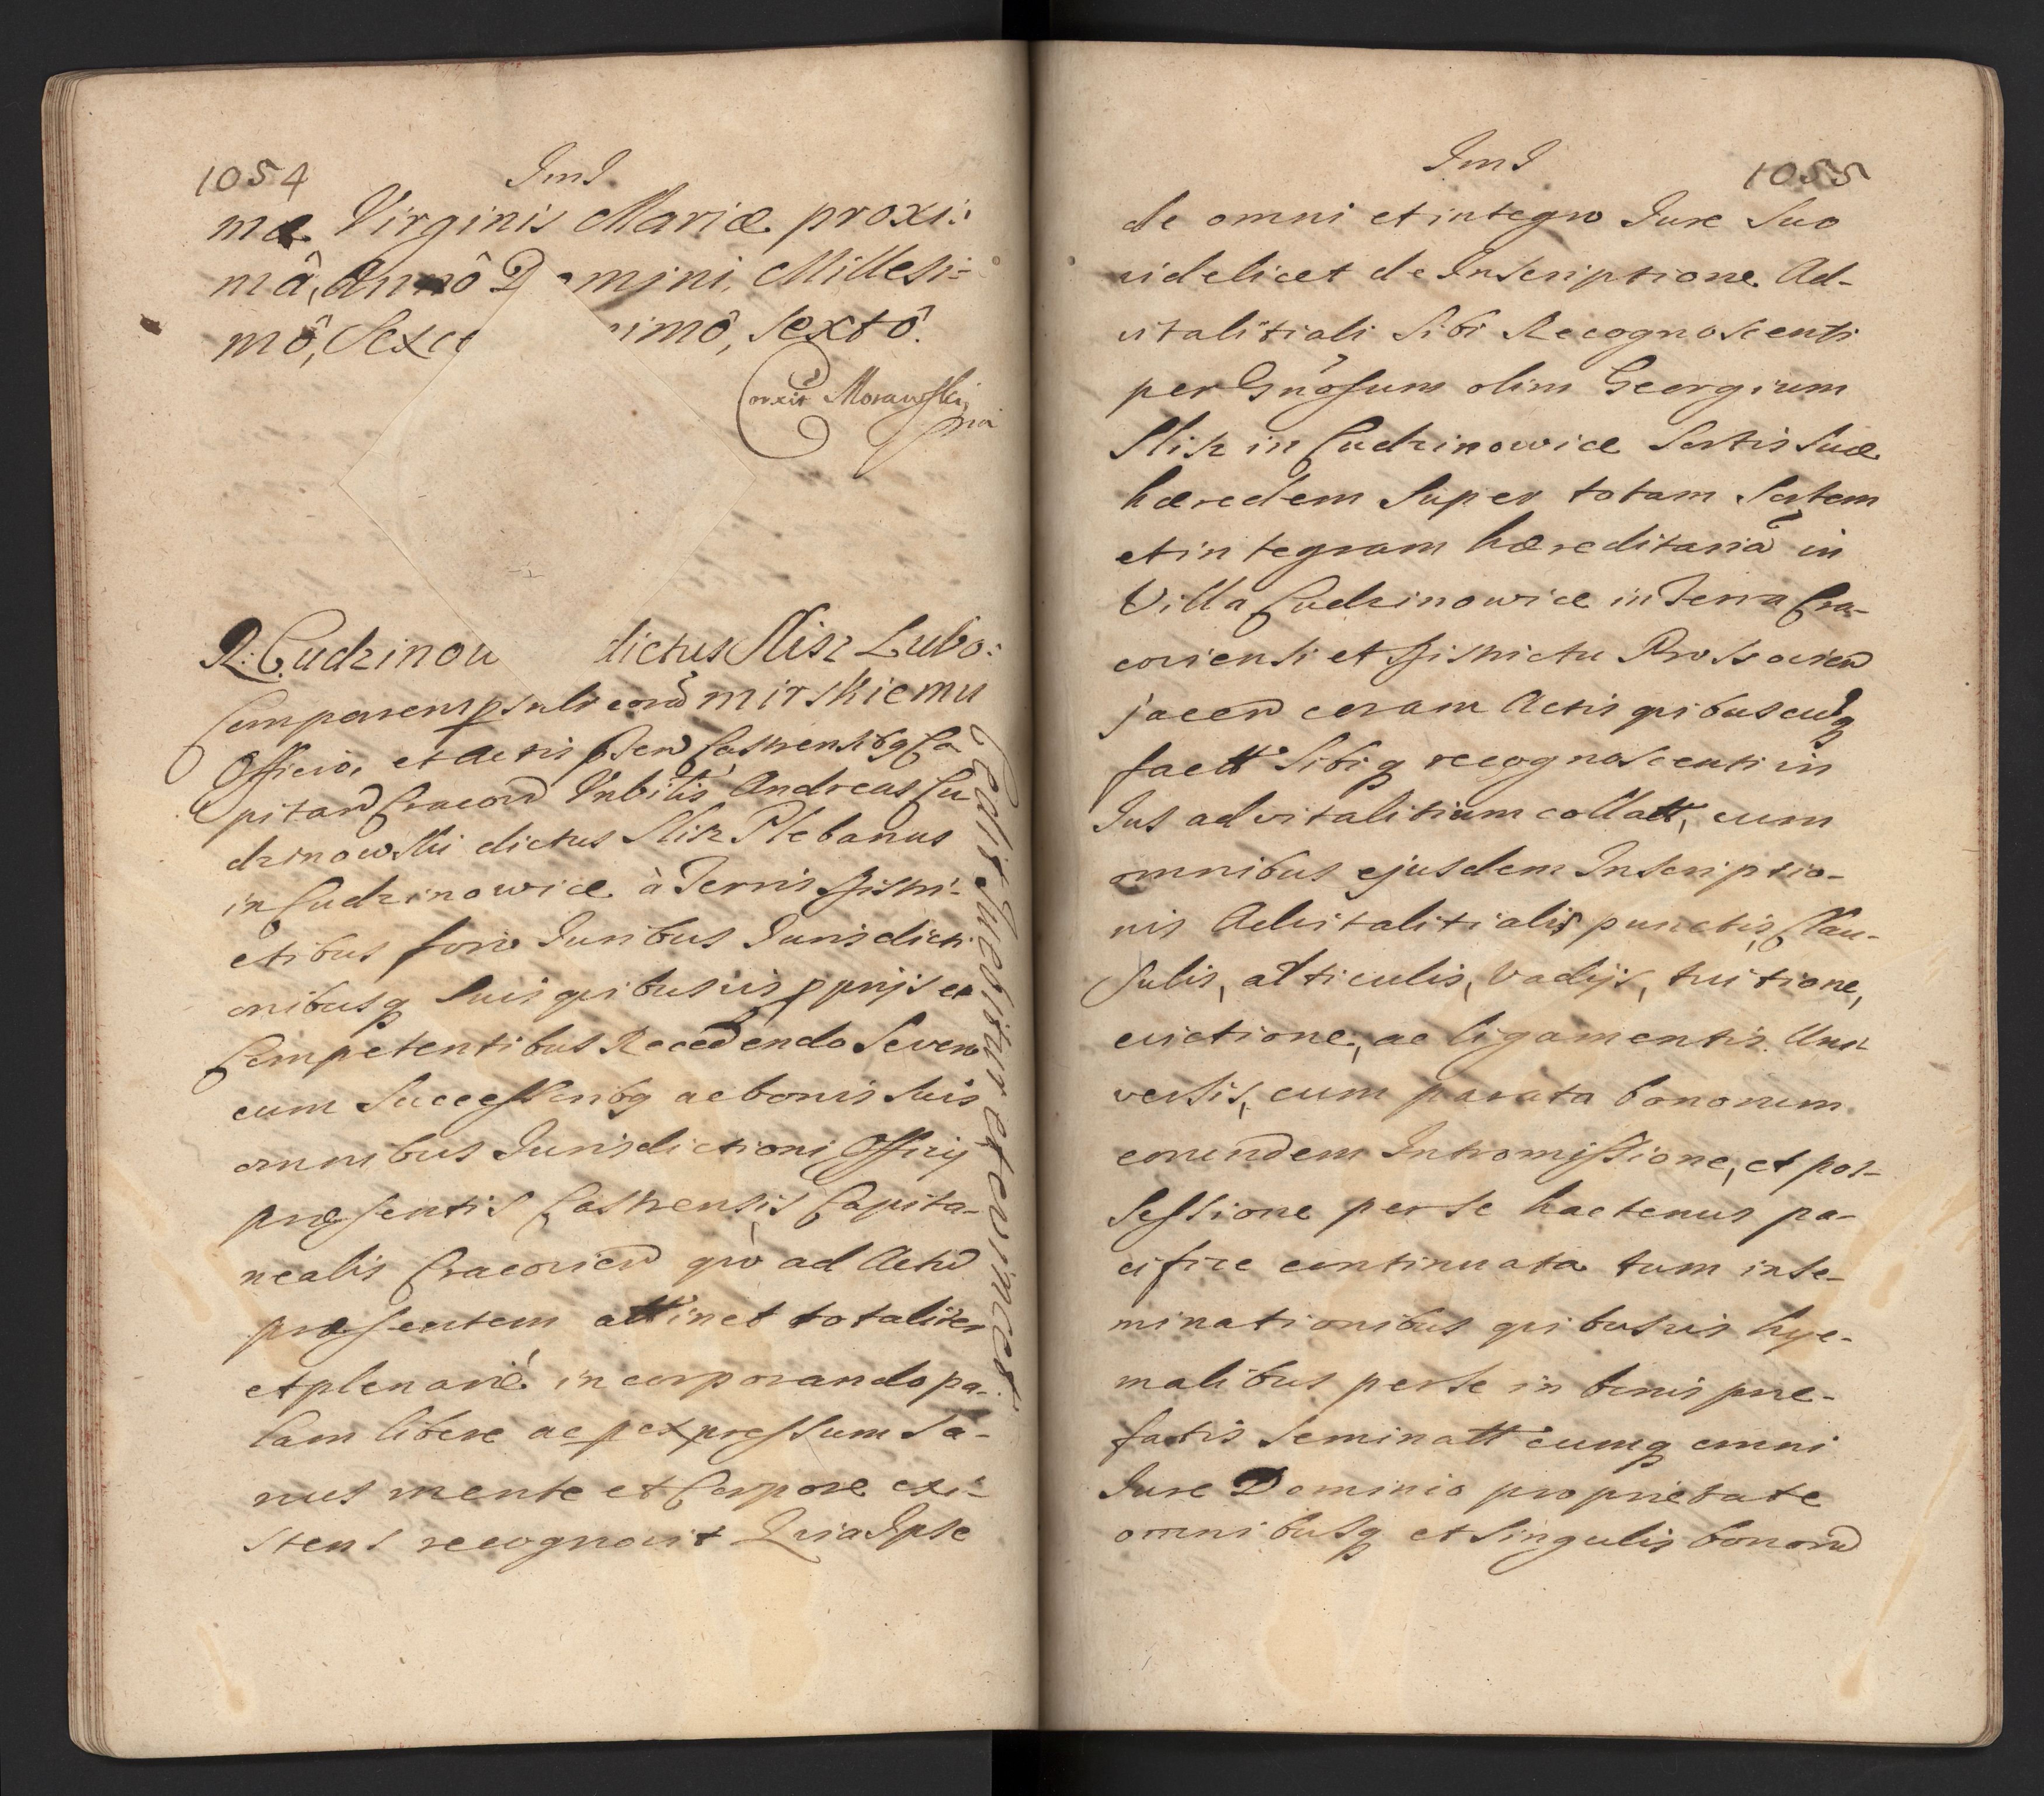 1054
JmJ
mæ Virginis Mariæ proxi:
mâ, Annô Domini, Millesi-
mô, Sexce imô, sextô.
Correxit Morawski
mpa
R: Cudzinow dictus Slisz Lubo:
mirskiemu
Comparens psnlr corã
Officio, et actis psen Castrensibq Ca
pitan Cracovn Vnblis Andreas Cu
dzinowski dictus Slisz Plebanus
in Cudzinowice à Terris Distri-
ctibus foro Juribus Jurisdicti
onibusq suis quibusvis pprijs et
Competentibus Recedendo Seven
cum Successoribq ac bonis suis
omnibus Jurisdictioni Officij
præsentis Castrensis Capita-
nealis Cracovien quò ad Actũ
præsentem attinet totaliter
et plenariè incorporando pa-
lam libere ac p expressum sa-
nus mente et Corpore exi-
stens recognovit Quia Ipse
Cedit Iuebitur et evincet
JmJ
1055
de omni et integro Jure Suo
videlicet de Inscriptione Ad-
vitalitiali Sibi Recognoscenti
per Gnosum olim Georgium
Slisz in Cudzinowice Sortis Suæ
hæredem Super totam Sortem
et integram hæreditariã in
Villa Cudzinowice in Terra Cra-
coviensi et Districtu Prossovien
jacen coram Actis quibuscuq
factt Sibiq recognoscenti in
Jus advitalitium collatt, cum
omnibus ejusdem Inscriptio-
nis Advitalitialis punctis, Clau-
sulis, articulis, Vadijs, tuitione,
evictione, ac ligamentis Uni
versis, cum parata bonorum
eorundem Intromissione, et pos-
sessione per se hactenus pa-
cifice continuata tum inse-
minationibus quibusvis hye-
malibus per se in bonis præ-
fatis Seminatt cumq omni
Jure Dominio proprietate
omnibusq et Singulis bonorũ